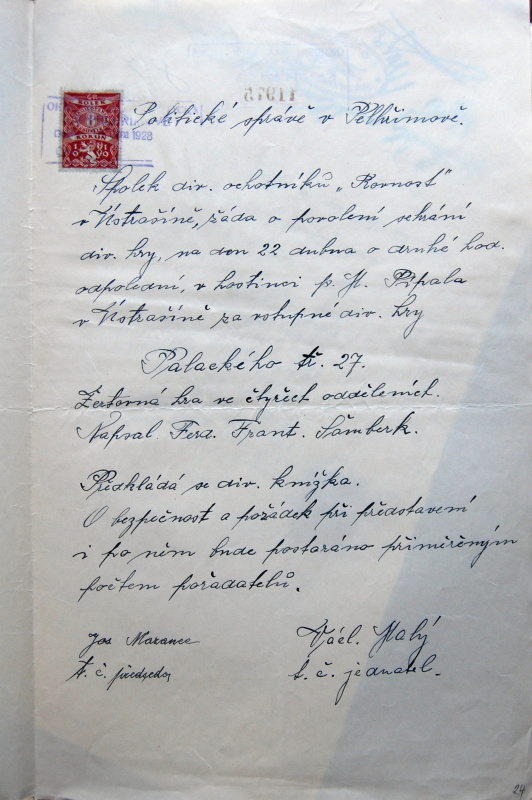 11975
KOLEK
8
1928
Politické správě v Pelhřimově.
Spolek div. ochotníků „Rovnost"
v Ústrašíně, žádá o povolení sehrání
div. hry, na den 22 dubna o druhé hod.
odpolední, v hostinci p. H. Pípala
v Ústrašíně za vstupné div. hry
Palackého tř. 27.
Žertovná hra ve čtyřech odděleních.
Napsal Ferd. Frant. Šamberk.
Předkládá se div. knížka.
O bezpečnost a pořádek při představení
i po něm bude postaráno přiměřeným
počtem pořadatelů.
Jos Mazanec
t. č. předseda
Václ. Malý
t. č. jednatel.
24